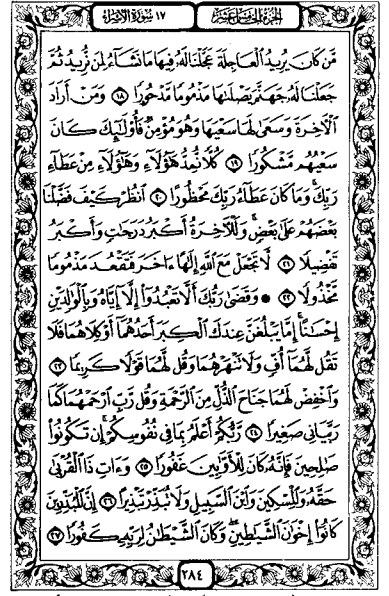 الجزء الخامس عشر ١٧ سورة الإسراء
مَّن كَانَ يُرِيدُ الْعَاجِلَةَ عَجَّلْنَا لَهُ فِيهَا مَا نَشَاءُ لِمَن نُّرِيدُ ثُمَّ
جَعَلْنَا لَهُ جَهَنَّمَ يَصْلَىٰهَا مَذْمُومًا مَّدْحُورًا ١٨ وَمَنْ أَرَادَ
الْآخِرَةَ وَسَعَىٰ لَهَا سَعْيَهَا وَهُوَ مُؤْمِنٌ فَأُولَٰئِكَ كَانَ
سَعْيُهُم مَّشْكُورًا ١٩ كُلًّا نُّمِدُّ هَٰؤُلَاءِ وَهَٰؤُلَاءِ مِنْ عَطَاءِ
رَبِّكَ وَمَا كَانَ عَطَاءُ رَبِّكَ مَحْظُورًا ٢٠ انظُرْ كَيْفَ فَضَّلْنَا
بَعْضَهُمْ عَلَىٰ بَعْضٍ وَلَلْآخِرَةُ أَكْبَرُ دَرَجَٰتٍ وَأَكْبَرُ
تَفْضِيلًا ٢١ لَّا تَجْعَلْ مَعَ اللَّهِ إِلَٰهًا ءَاخَرَ فَتَقْعُدَ مَذْمُومًا
مَّخْذُولًا ٢٢ ۞ وَقَضَىٰ رَبُّكَ أَلَّا تَعْبُدُوا إِلَّا إِيَّاهُ وَبِالْوَٰلِدَيْنِ
إِحْسَٰنًا إِمَّا يَبْلُغَنَّ عِندَكَ الْكِبَرَ أَحَدُهُمَا أَوْ كِلَاهُمَا فَلَا
تَقُل لَّهُمَا أُفٍّ وَلَا تَنْهَرْهُمَا وَقُل لَّهُمَا قَوْلًا كَرِيمًا ٢٣
وَاخْفِضْ لَهُمَا جَنَاحَ الذُّلِّ مِنَ الرَّحْمَةِ وَقُل رَّبِّ ارْحَمْهُمَا كَمَا
رَبَّيَانِي صَغِيرًا ٢٤ رَّبُّكُمْ أَعْلَمُ بِمَا فِي نُفُوسِكُمْ إِن تَكُونُوا
صَٰلِحِينَ فَإِنَّهُ كَانَ لِلْأَوَّٰبِينَ غَفُورًا ٢٥ وَءَاتِ ذَا الْقُرْبَىٰ
حَقَّهُ وَالْمِسْكِينَ وَابْنَ السَّبِيلِ وَلَا تُبَذِّرْ تَبْذِيرًا ٢٦ إِنَّ الْمُبَذِّرِينَ
كَانُوا إِخْوَٰنَ الشَّيَٰطِينِ وَكَانَ الشَّيْطَٰنُ لِرَبِّهِ كَفُورًا ٢٧
٢٨٤